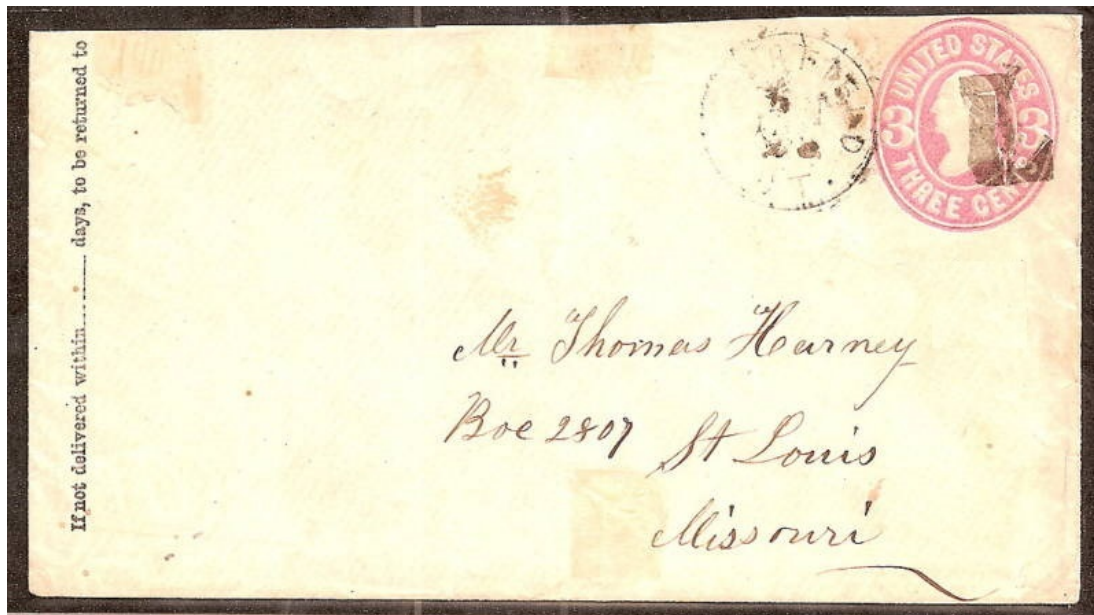 If not delivered within........ days, to be returned to
UNITED STATES
3 3
THREE CEN
Mr Thomas Harney
Box 2807 St Louis
Missouri